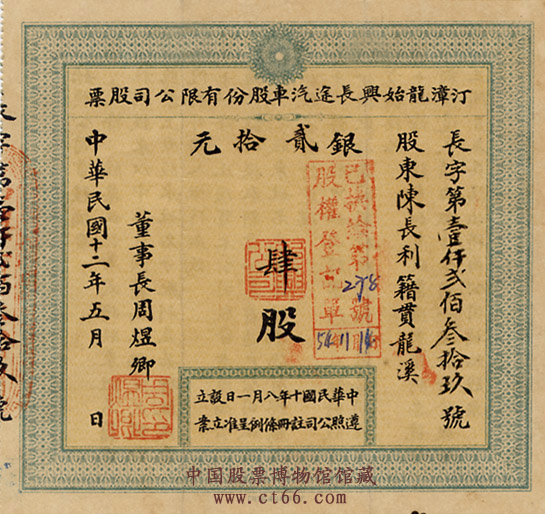 汀漳龍始興長途汽車股份有限公司股票
長字第壹仟弍佰叁拾玖號
股東陳長利籍貫龍溪
銀貳拾元
已換給第278號
股權登記單
54 11
肆股
董事長周煜卿
中華民國十二年五月 日
字第壹仟弍佰叁拾玖號
中華民國十年八月一日設立
遵照公司註冊條例呈准立案
中国股票博物馆馆藏
www.ct66.com